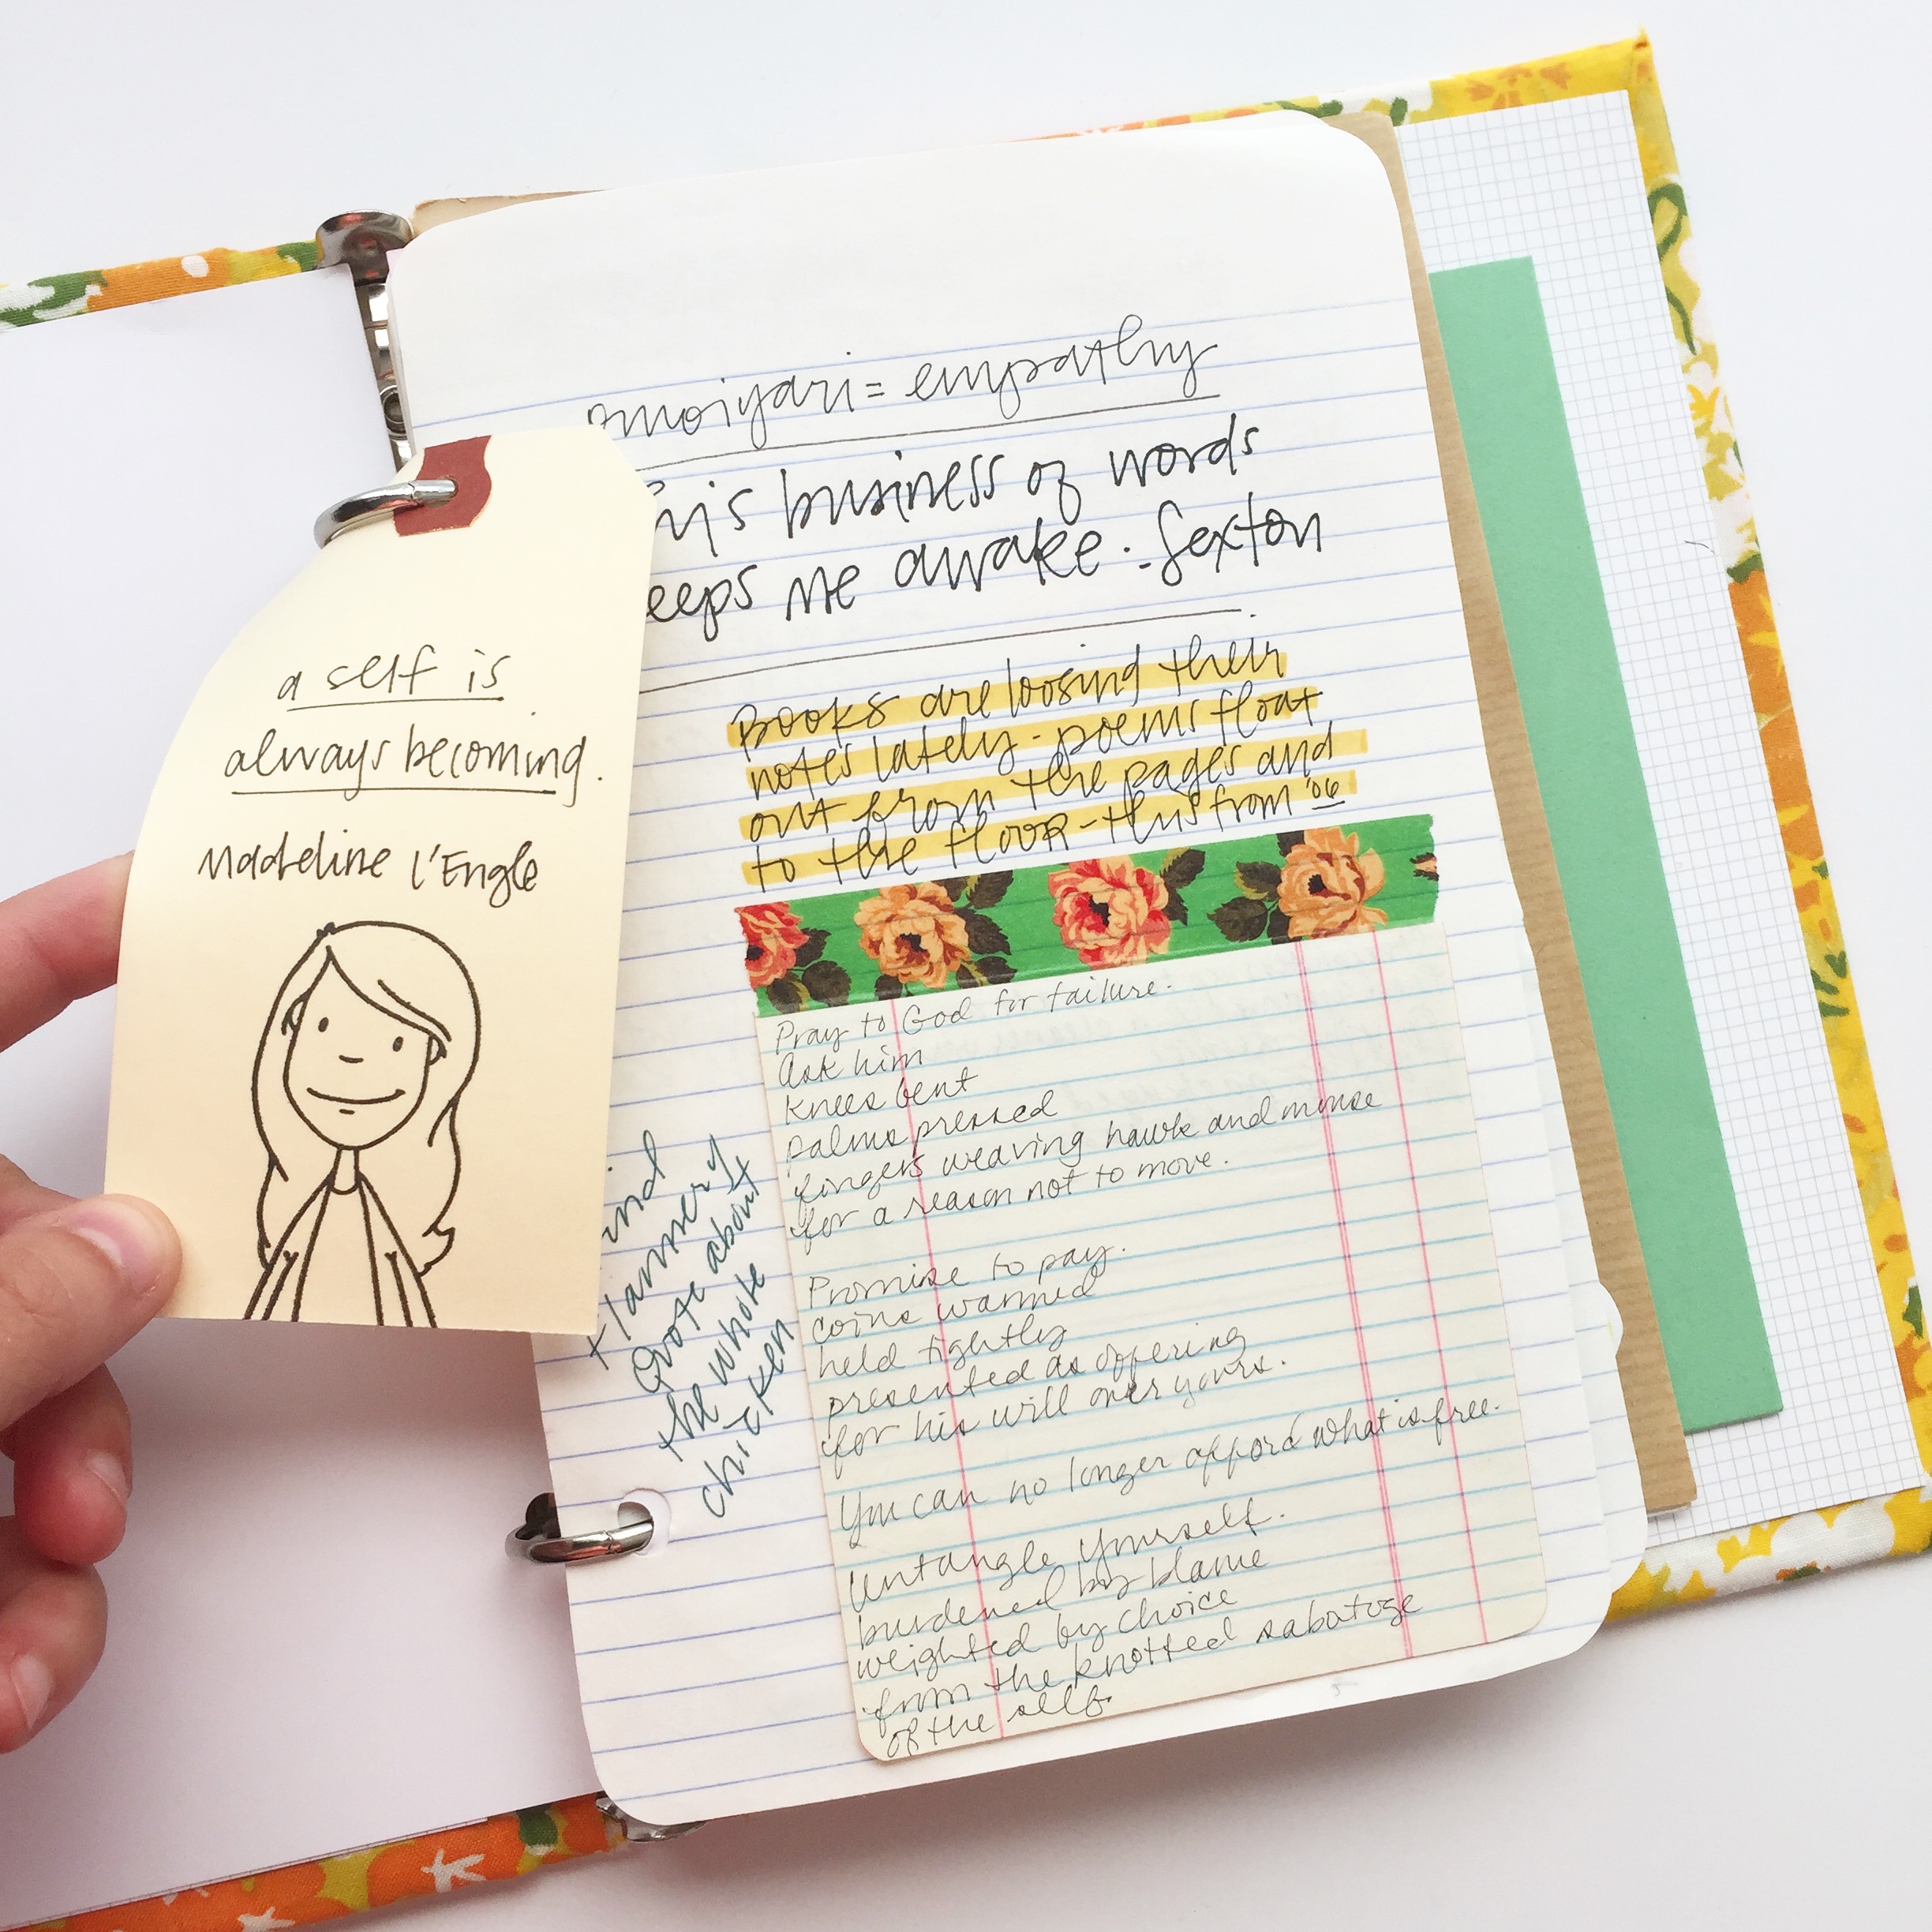 a self is
always becoming.
Madeline l'Engle
omoiyari = empathy
his business of words
eeps me awake. - Sexton
Books are loosing their
notes lately - poems float
out from the pages and
to the floor - this from '06
Pray to God for failure.
Ask him
knees bent
palms pressed
fingers weaving hawk and mouse
for a reason not to move.
Promise to pay.
coins warmed
held tightly
presented as offering
for his will over yours.
You can no longer afford what is free.
Untangle yourself.
burdened by blame
weighted by choice
from the knotted sabotage
of the self.
ind
Flannery
Quote about
the whole
chicken